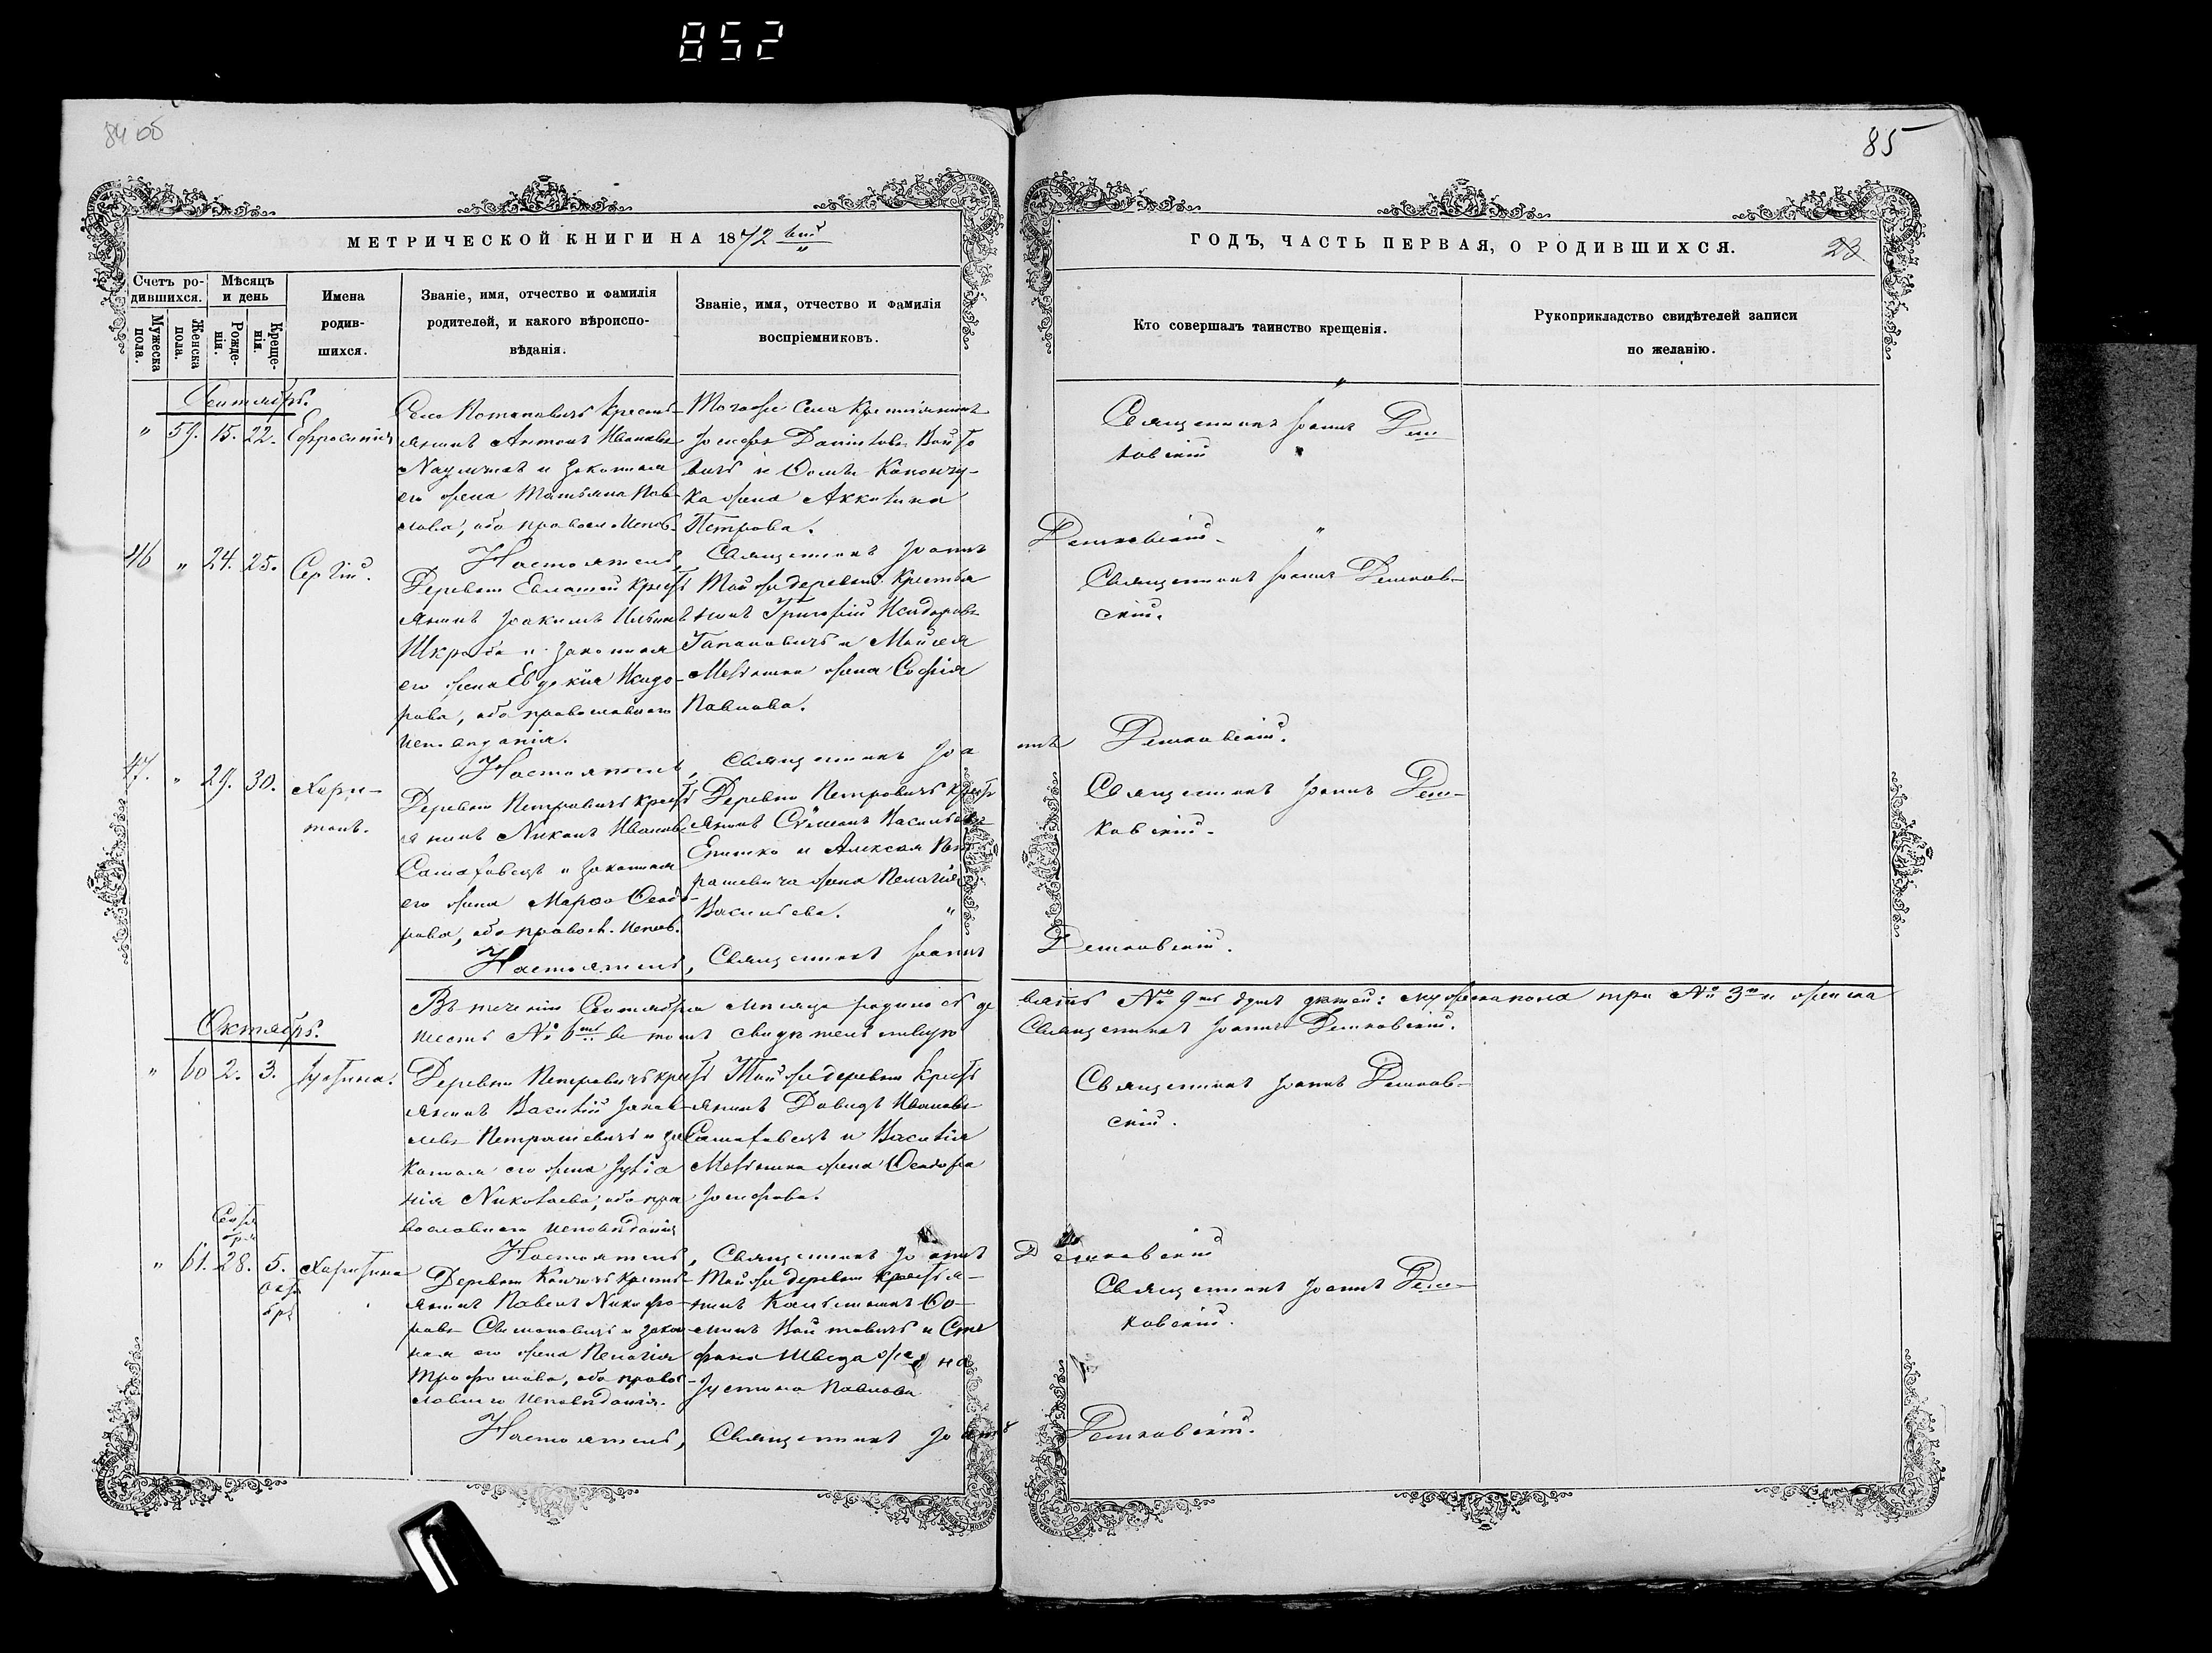 852
84 об
85
МЕТРИЧЕСКОЙ КНИГИ НА 1872 ой
ГОДЪ, ЧАСТЬ ПЕРВАЯ, О РОДИВШИХСЯ.
23
Счетъ ро-
дившихся.
Мужеска
пола.
Женска
пола.
Мѣсяцъ
и день
Рожде-
нія.
Креще-
нія.
Имена
родив-
шихся.
Званіе, имя, отчество и фамилія
родителей, и какого вѣроиспо-
вѣданія.
Званіе, имя, отчество и фамилія
воспріемниковъ.
Кто совершалъ таинство крещенія.
Рукоприкладство свидѣтелей записи
по желанію.
Сентябрь.
" 59. 15. 22. Евфросинія
Села Потаповичъ кресть-
янинъ Антонъ Ивановъ
Наумчикъ и законная
его жена Татьяна Пав-
лова, оба православ. Испов.
Тогоже Села Крестьянинъ
Іосифъ Даниловъ Войто
вичъ и Фомы
жена Акилина
Петрова.
Священникъ Іоаннъ Реш-
ковскій
Настоятель, Священникъ Іоаннъ Решковскій.
46 " 24. 25. Сергій.
Деревни Евлаши крест
янинъ Іоакимъ Ильинъ
Шкраба и законная
его жена Евдокія Исидо-
рова, оба православнаго
исповѣданія.
Той же деревни Крестья
нинъ Григорій Исидоровъ
Гапановичъ и Моисея
Мелешка жена Софія
Павлова.
Священникъ Іоаннъ Решков-
скій.
Настоятель, Священникъ Іоа ннъ Решковскій.
47. " 29. 30. Хари-
тонъ.
Деревни Петровичъ крест
янинъ Никонъ Ивановъ
Самаховецъ и законная
его жена Марѳа Ѳеодо-
рова, оба правосл. испов.
Деревни Петровичъ крест
янинъ Стефанъ Васильевъ
и Алексѣя Пет
рашевича жена Пелагія
Васильева. "
Священникъ Іоаннъ Реш-
ковскій.
Настоятель, Священникъ Іоаннъ Решковскій.
Въ теченіи Сентября мѣсяца родилось де вять № 9 душъ дѣтей: мужеска пола три № 3 и женска
шесть № 6 въ томъ свидѣтельствую Священникъ Іоаннъ Решковскій.
Октябрь.
" 60 2. 3. Іустина.
Деревни Петровичъ крест
янинъ Василій Яков-
левъ Петрашевичъ и за
конная его жена Іуліа
нія Николаева, оба пра
вославнаго исповѣданія
Той же деревни Крест
янинъ Давидъ Ивановъ
Самаховецъ и Василія
Мелешка жена Ѳеодора
Іосифова.
Священникъ Іоаннъ Решков-
скій.
Настоятель, Священникъ Іоаннъ Решковскій
Сентя
бря
" 61. 28. 5. Харитина
Октя
бря
янинъ Павелъ Никифо-
ровъ и закон
ная его жена Пелагія
Трофимова, оба право-
славнаго исповѣданія.
Той же деревни крестья-
нинъ Ѳо-
минъ Войтовичъ и Сте
фана Шведа жена
Іустина Павлова
Священникъ Іоаннъ Реш-
ковскій.
Настоятель, Священникъ Іоаннъ Решковскій.